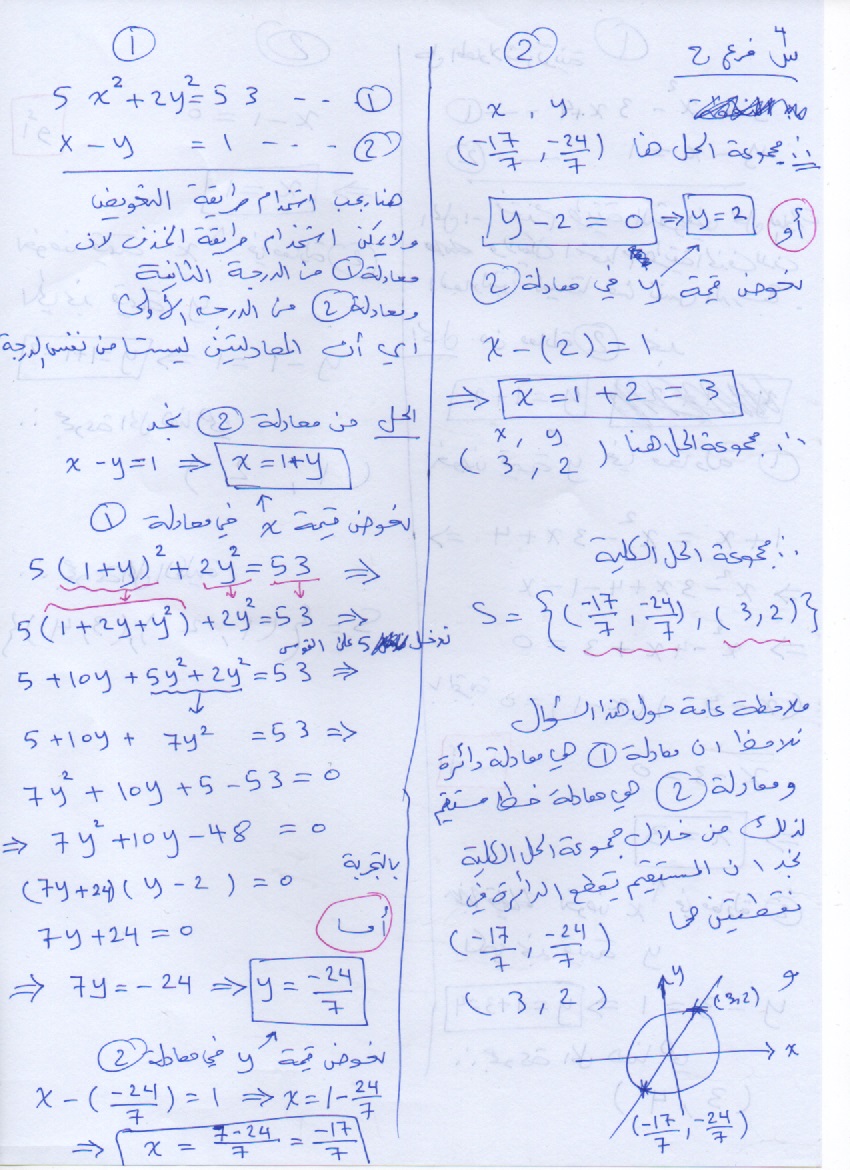 ①
5 x² + 2y² = 53 - - ①
x - y = 1 - - - ②
هنا يجب استخدام طريقة التعويض
ولا يمكن استخدام طريقة الحذف لان
معادلة ① من الدرجة الثانية
ومعادلة ② من الدرجة الأولى
اي أن المعادلتين ليستا من نفس الدرجة
الحل من معادلة ② نجد
x - y = 1 ⇒ x = 1 + y
نعوض قيمة x في معادلة ①
5 (1+y)² + 2y² = 53 ⇒
5 (1 + 2y + y²) + 2y² = 53 ⇒
ندخل 5 على القوس
5 + 10y + 5y² + 2y² = 53 ⇒
5 + 10y + 7y² = 53 ⇒
7y² + 10y + 5 - 53 = 0
⇒ 7y² + 10y - 48 = 0
بالتجربة
(7y + 24) (y - 2) = 0
أما
7y + 24 = 0
⇒ 7y = -24 ⇒ y = -24/7
نعوض قيمة y في معادلة ②
x - (-24/7) = 1 ⇒ x = 1 - 24/7
⇒ x = 7-24/7 = -17/7
②
س4 فرع ح
x , y
∴ مجموعة الحل هنا (-17/7 , -24/7)
أو y - 2 = 0 ⇒ y = 2
نعوض قيمة y في معادلة ②
x - (2) = 1
⇒ x = 1 + 2 = 3
x , y
∴ مجموعة الحل هنا (3 , 2)
∴ مجموعة الحل الكلية
S = {(-17/7 , -24/7) , (3, 2)}
ملاحظة عامة حول هذا السؤال
نلاحظ ان معادلة ① هي معادلة دائرة
ومعادلة ② هي معادلة خط مستقيم
لذلك من خلال مجموعة الحل الكلية
نجد ان المستقيم يقطع الدائرة في
نقطتين هي
(-17/7 , -24/7)
و
(3 , 2)
y
(3,2)
x
(-17/7 , -24/7)